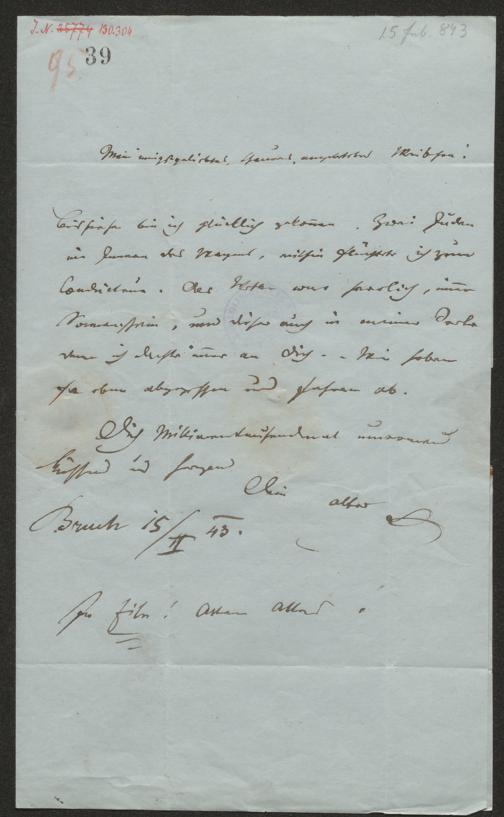 J. N. 25774 130.304
15 Feb. 843
95
39
Mein innigstgeliebtes, theures, angebetetes Weibchen!
Bis hieher bin ich glücklich gekommen. Zwei Juden
im Innern des Wagens, mithin flüchtete ich zum
Conducteur. Das Wetter war herrlich, immer
Sonnenschein, und dieser auch in meiner Seele
denn ich dachte immer an Dich. - Wir haben
eben abgegessen und fahren ab.
Dich Millionentausendmal umarmend
küssend und
Dein alter
Bruck 15/II 43.